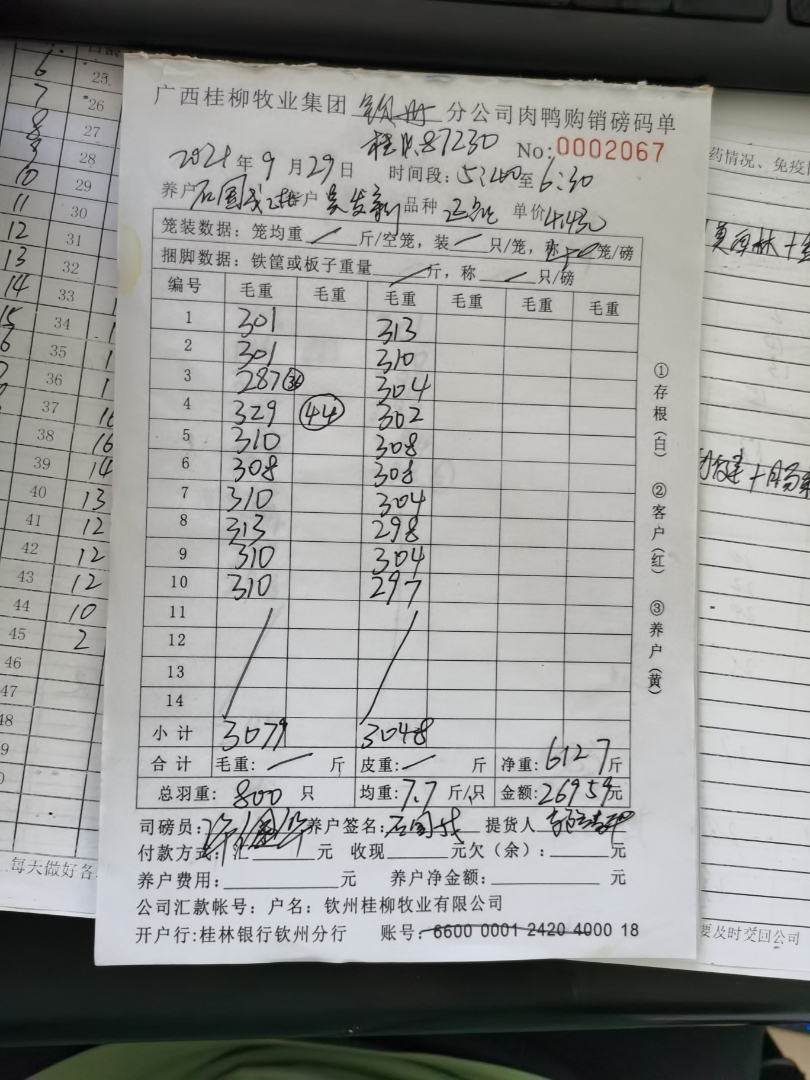 广西桂柳牧业集团 钦州 分公司肉鸭购销磅码单
桂N.87230 No:0002067
2021年9月29日 时间段:5:40至6:30
养户 石国成 客户 吴发新 品种 单价4.4元
笼装数据:笼均重 / 斤/空笼,装 / 只/笼,称 笼/磅
捆脚数据:铁筐或板子重量 / 斤,称 / 只/磅
编号 毛重 毛重 毛重 毛重 毛重 毛重
1 301 313
2 301 310
3 287 304
4 329 (44) 302
5 310 308
6 308 308
7 310 304
8 313 298
9 310 304
10 310 297
11
12
13
14
小计 3079 3048
合计 毛重:/ 斤 皮重:/ 斤 净重:6127斤
总羽重:800 只 均重:7.7斤/只 金额:26959元
司磅员: 养户签名:石国成 提货人
付款方式:汇 元 收现 元欠(余): 元
养户费用: 元 养户净金额: 元
公司汇款帐号:户名:钦州桂柳牧业有限公司
开户行:桂林银行钦州分行 账号:6600 0001 2420 4000 18
①存根(白) ②客户(红) ③养户(黄)
6 25
7 26
8 27
9 28
10 29
11 30
12 31
13 32
14 33
15 34
35
36
37
38 16
39 14
40 13
41 12
42 12
43 12
44 10
45 2
46
47
48
每天做好各
药情况、免疫
要及时交回公司